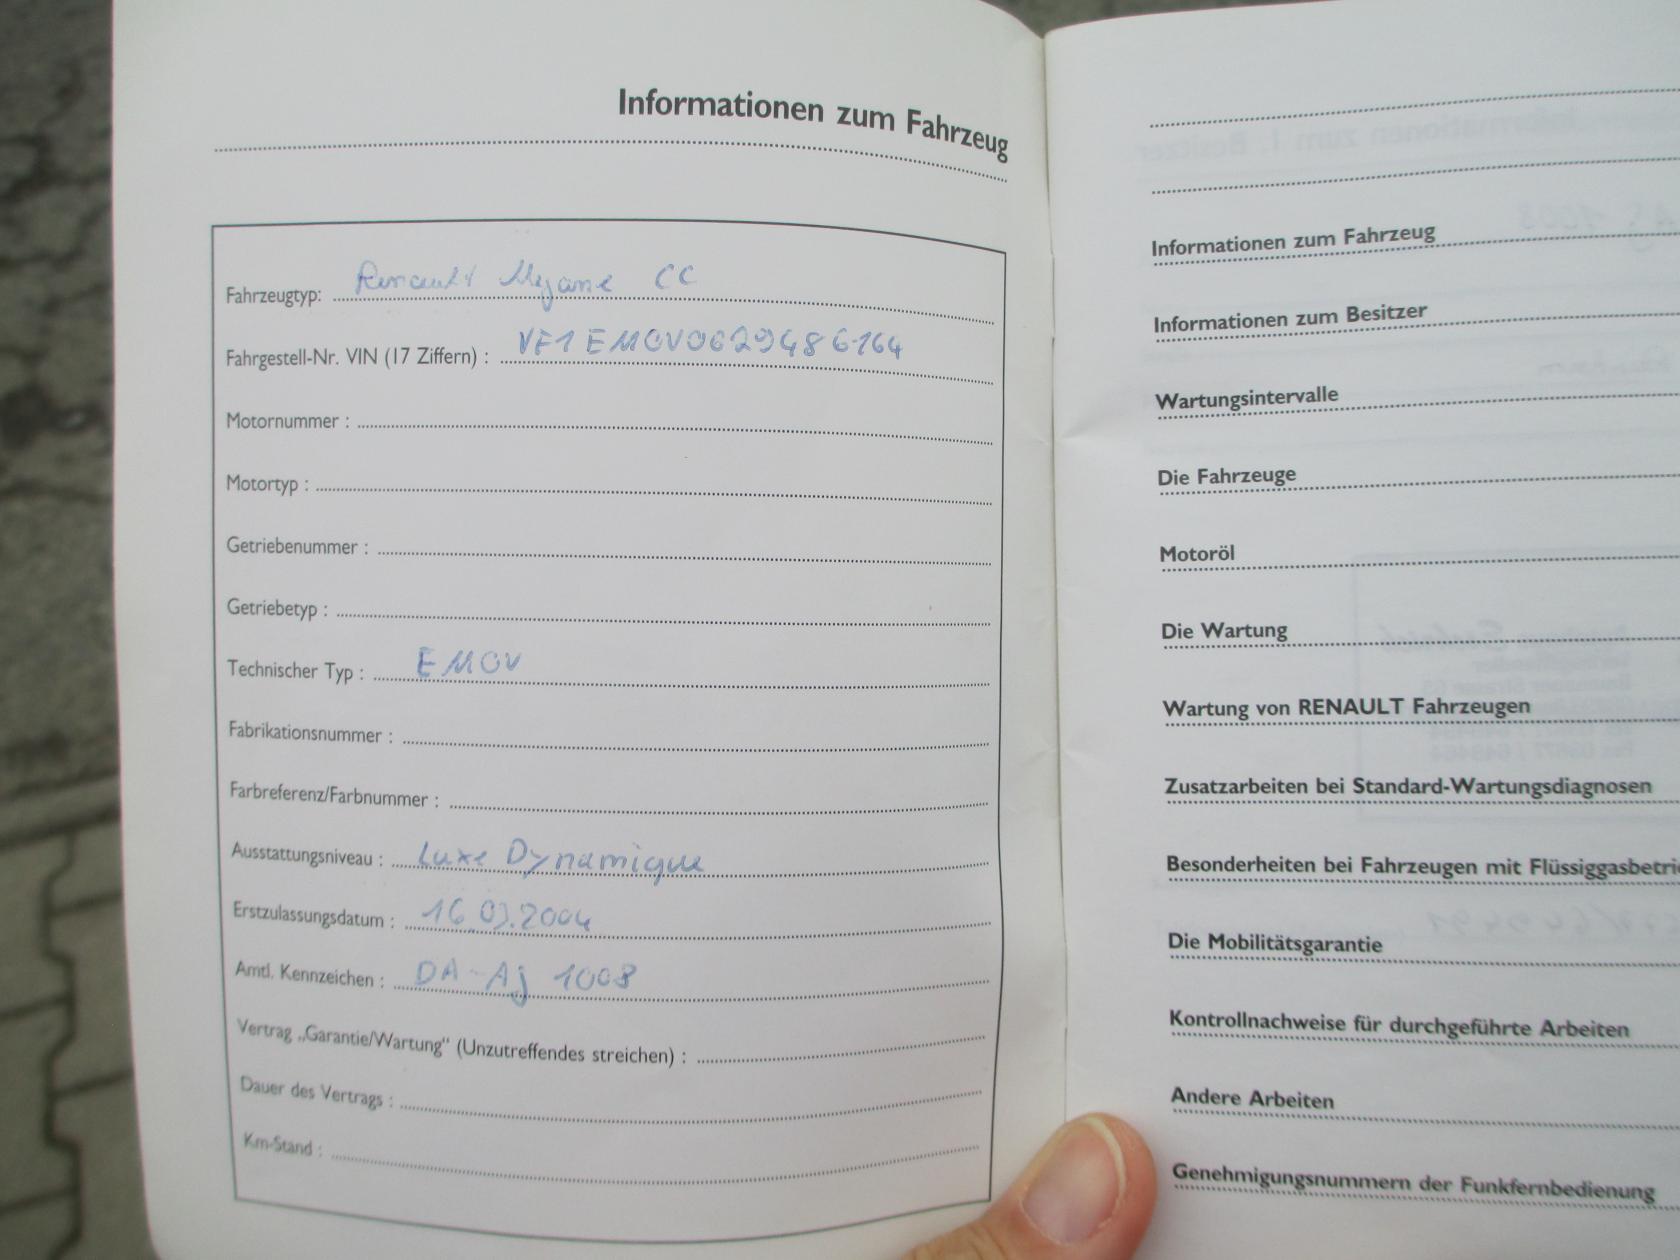 Informationen zum Fahrzeug
Fahrzeugtyp: Renault Megane CC
Fahrgestell-Nr. VIN (17 Ziffern) : VF1EM0V0629486164
Motornummer :
Motortyp :
Getriebenummer :
Getriebetyp :
Technischer Typ : EM0V
Fabrikationsnummer :
Farbreferenz/Farbnummer :
Ausstattungsniveau : Luxe Dynamique
Erstzulassungsdatum : 16.03.2004
Amtl. Kennzeichen : DA-AJ 1008
Vertrag „Garantie/Wartung" (Unzutreffendes streichen) :
Dauer des Vertrags :
Km-Stand :
Informationen zum Fahrzeug
Informationen zum Besitzer
Wartungsintervalle
Die Fahrzeuge
Motoröl
Die Wartung
Wartung von RENAULT Fahrzeugen
Zusatzarbeiten bei Standard-Wartungsdiagnosen
Besonderheiten bei Fahrzeugen mit Flüssiggasbetri
Die Mobilitätsgarantie
Kontrollnachweise für durchgeführte Arbeiten
Andere Arbeiten
Genehmigungsnummern der Funkfernbedienung